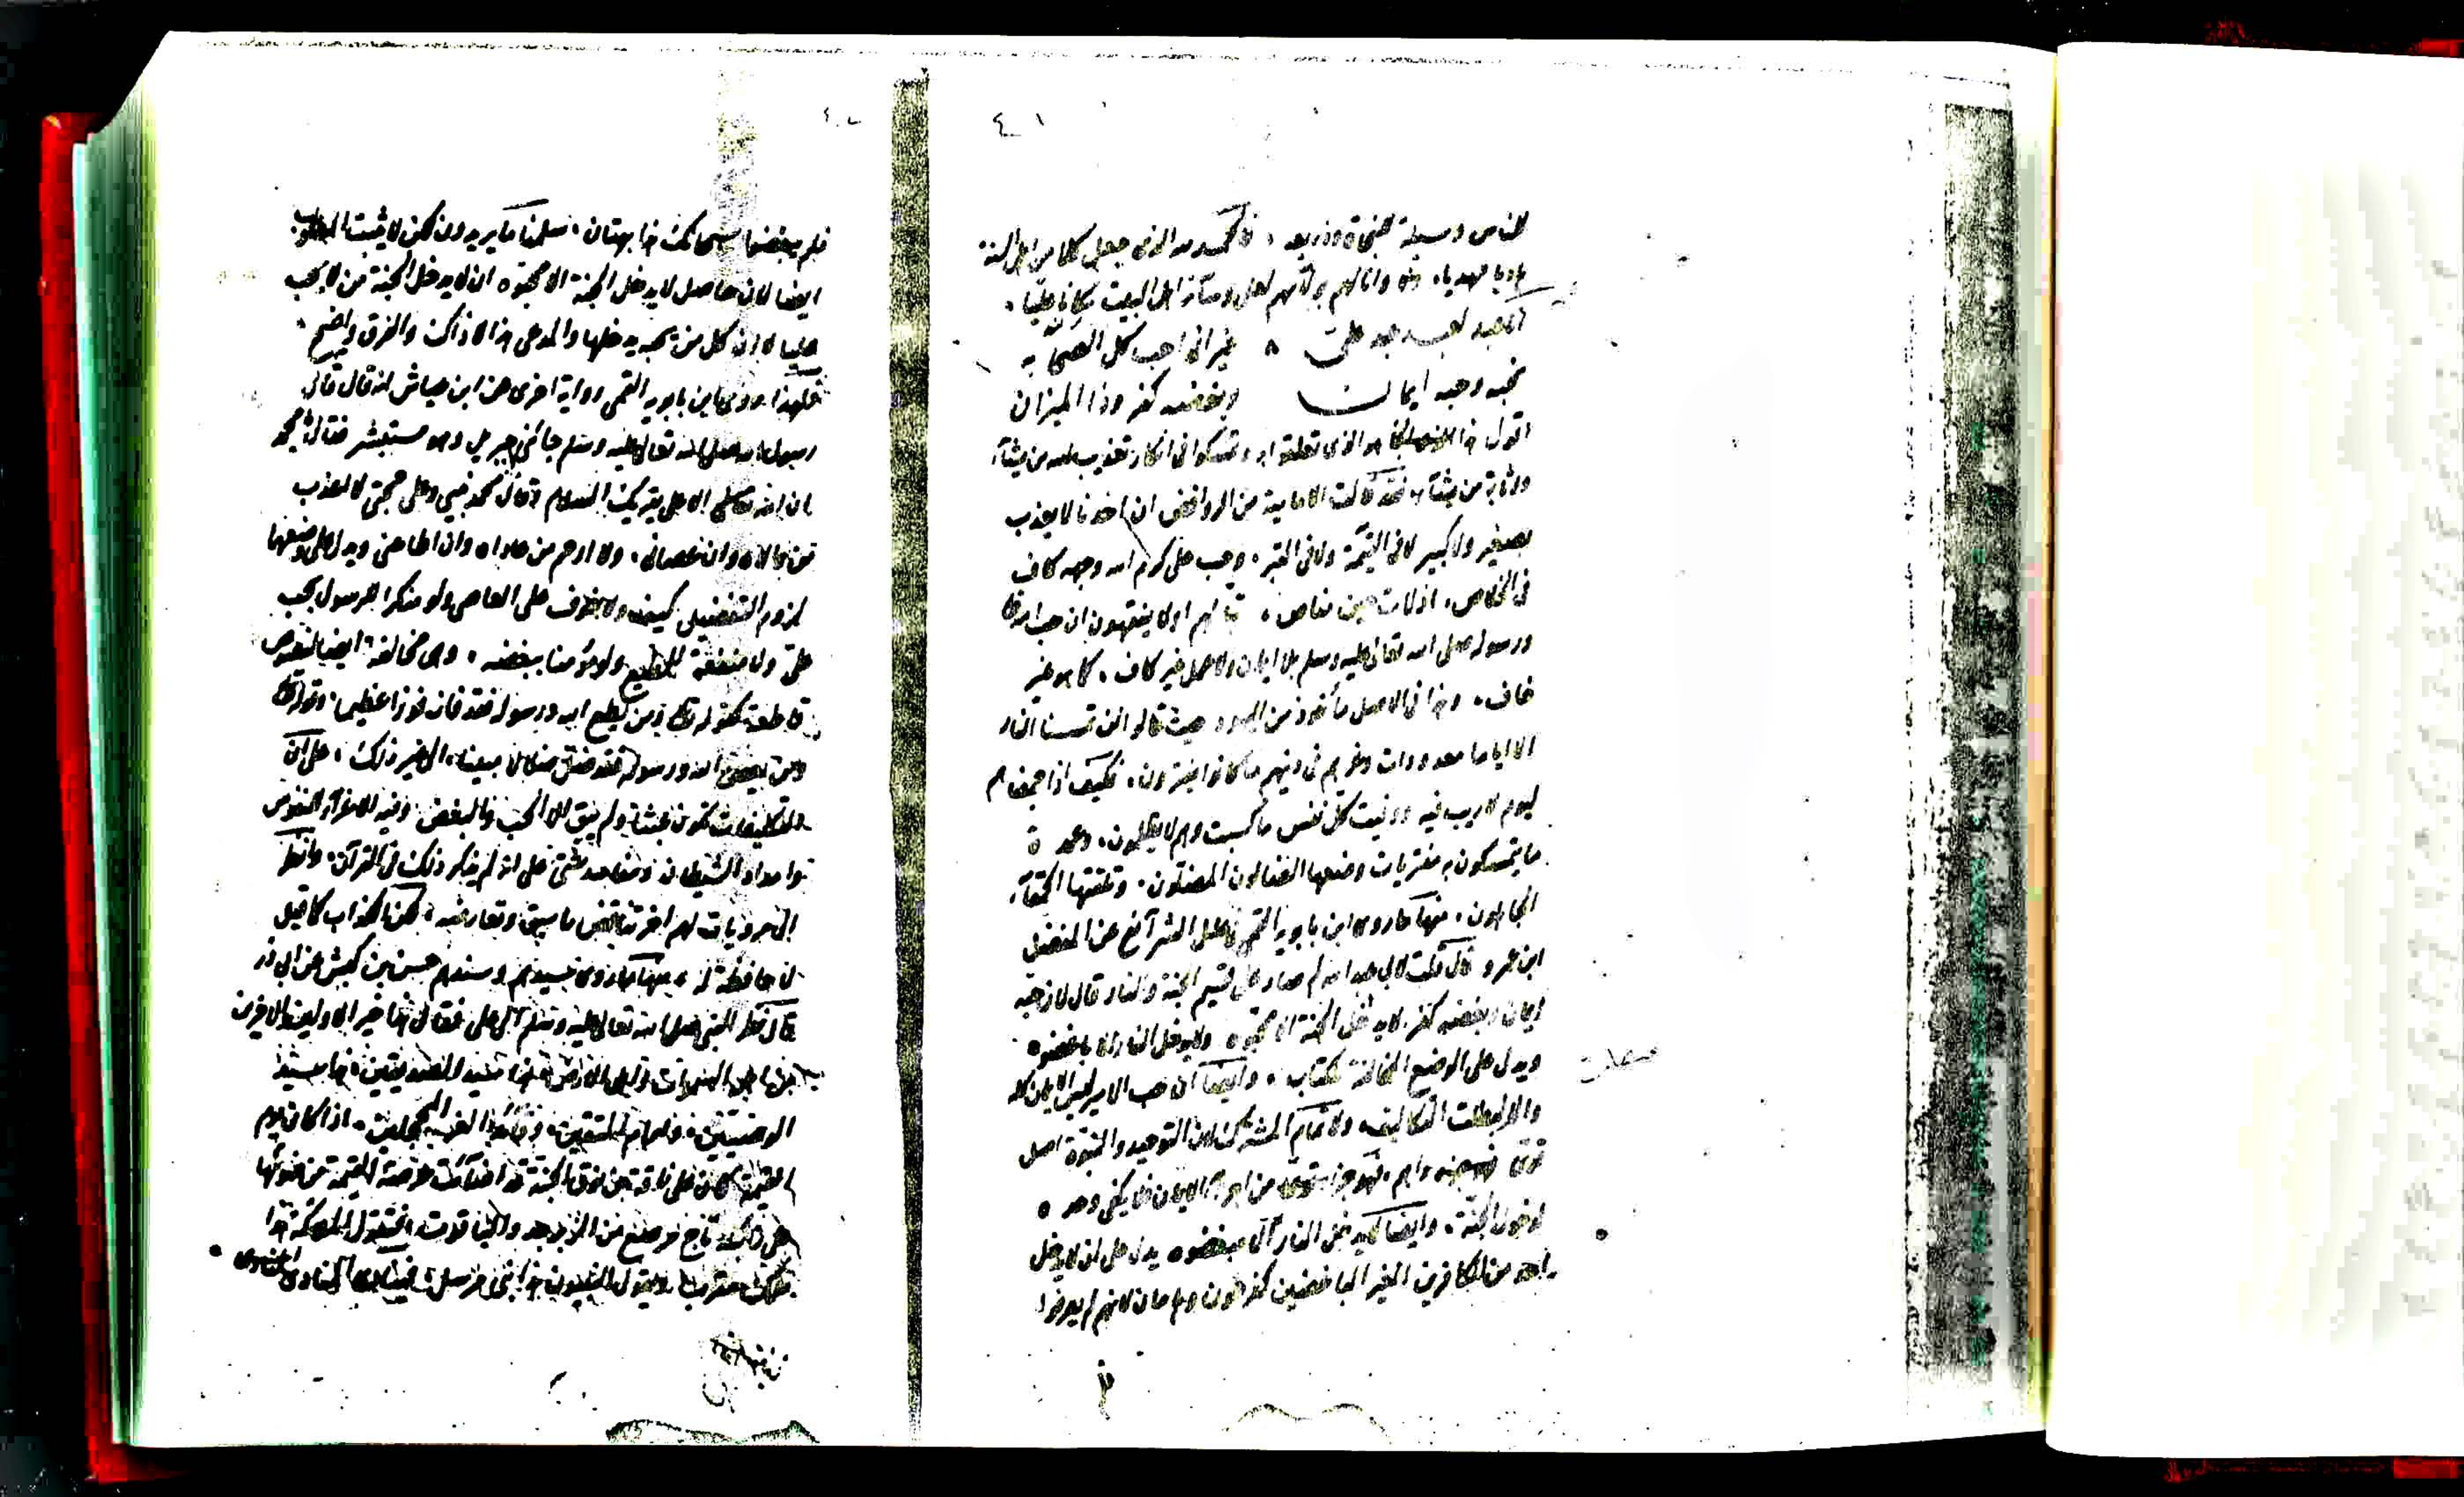 ٤١
للناس وسيلة للنجاة وذريعه ، فالحمد لله الذي جعل كلا من اهل السنة
هاديا مهديا، وانالهم بولائهم لعلي وسائر اهل البيت مكانا عليا،
انا عبد لعبد عبد علي ، غير اني احب كل الصحابه
نحبه وحبه ايمان وبغضه كفر وذا الميزان
اقول هو الذي تعلقوا به وتمسكوا في انكار تعذيب الله من يشاء
واثابة من يشاء، فقد قالت الامامية من الروافض ان احدنا لا يعذب
بصغير ولا كبير لا في القيمة ولا في القبر، وحب علي كرم الله وجهه كاف
في الخلاص، اذ لات حين مناص ، تبا لهم اولا يفقهون ان حب الله تعالى
ورسوله صلى الله تعالى عليه وسلم بلا ايمان ولا عمل غير كاف ، كما هو غير
خاف، وهذا في الاصل مأخوذ من اليهود حيث قالوا لن تمسنا النار
الا اياما معدودات وغرهم في دينهم ما كانوا يفترون، فكيف اذا جمعناهم
ليوم لا ريب فيه ووفيت كل نفس ما كسبت وهم لا يظلمون، وعمدة
ما يتمسكون به مفتريات وضعها الضالون المضلون، وتلقتها الحمقاء
الجاهلون، منها ما روى ابن بابويه القمي في علل الشرائع عن المفضل
ابن عمرو قال قلت لابي عبد الله لم صار علي قسيم الجنة والنار قال لان حبه
ايمان وبغضه كفر، لا يدخل الجنة الا محبوه ولا يدخل النار الا باغضوه
ويدل على الوضع المخالفة للكتاب ، وايضا ان حب الامير ليس الايمان كله
والا لبطلت التكاليف، ولا تمام المشترك لان التوحيد والنبوة اصل
قوى منه واهم، فهو جزء من اجزاء الايمان فلا يكفي وحده
لدخول الجنة، وايضا لا يدخل النار الا مبغضوه يدل على ان لا يدخل
احد من الكافرين الغير الباغضين كفرعون وهامان لانهم لم يعرفوا
٤٢
فلم يبغضوا سبحانك هذا بهتان، سلمنا ما يريدون لكن لا يثبت المطلوب
ايضا لان حاصل لا يدخل الجنة الا محبوه ان لا يدخل الجنة من لا يحب
عليا لا ان كل من يحبه يدخلها والمدعى هذا لا ذاك والفرق واضح،
ولهذا روى ابن بابويه القمي رواية اخرى عن ابن عباس انه قال قال
رسول الله صلى الله تعالى عليه وسلم جائني جبريل وهو مستبشر فقال يا محمد
ان الله الاعلى يقرئك السلام وقال محمد نبيي وعلي حجتي لا اعذب
من والاه وان عصاني، ولا ارحم من عاداه وان اطاعني ويدل على وضعها
لزوم التفضيل كيف ولا خوف على العاصي ولو منكرا لرسول بحب
علي ولا منفعة للمطيع ولو مؤمنا ببغضه ، وهي مخالفة ايضا لنصوص
قاطعة كقوله تعالى ومن يطع الله ورسوله فقد فاز فوزا عظيما، وقوله تعالى
ومن يعص الله ورسوله فقد ضل ضلالا مبينا، الى غير ذلك ، على ان
التكليفات تكون عبثا ولم يبق الا الحب والبغض وفيه اغراء النفوس
وامداد الشيطان ومفاسد شتى على انه لم يذكر ذلك في القرآن، وانظر
الى روايات لهم اخر تناقض ما سبق وتعارضه ، لكن الكذاب كما قيل
لا حافظة له ، منها ما روى سيدهم وسندهم حسن بن كبش عن ابي ذر
قال نظر النبي صلى الله تعالى عليه وسلم الى علي فقال هذا خير الاولين والاخرين
من اهل السموات واهل الارض هذا سيد الصديقين، هذا سيد
الوصيين، وامام المتقين، وقائد الغر المحجلين، اذا كان يوم
القيمة كان على ناقة من نوق الجنة قد اضاءت عرصة القيمة من ضوئها
على رأسه تاج مرصع من الزبرجد والياقوت، فتقول الملائكة هذا
ملك مقرب ويقول النبيون هذا نبي مرسل، فينادي المنادي